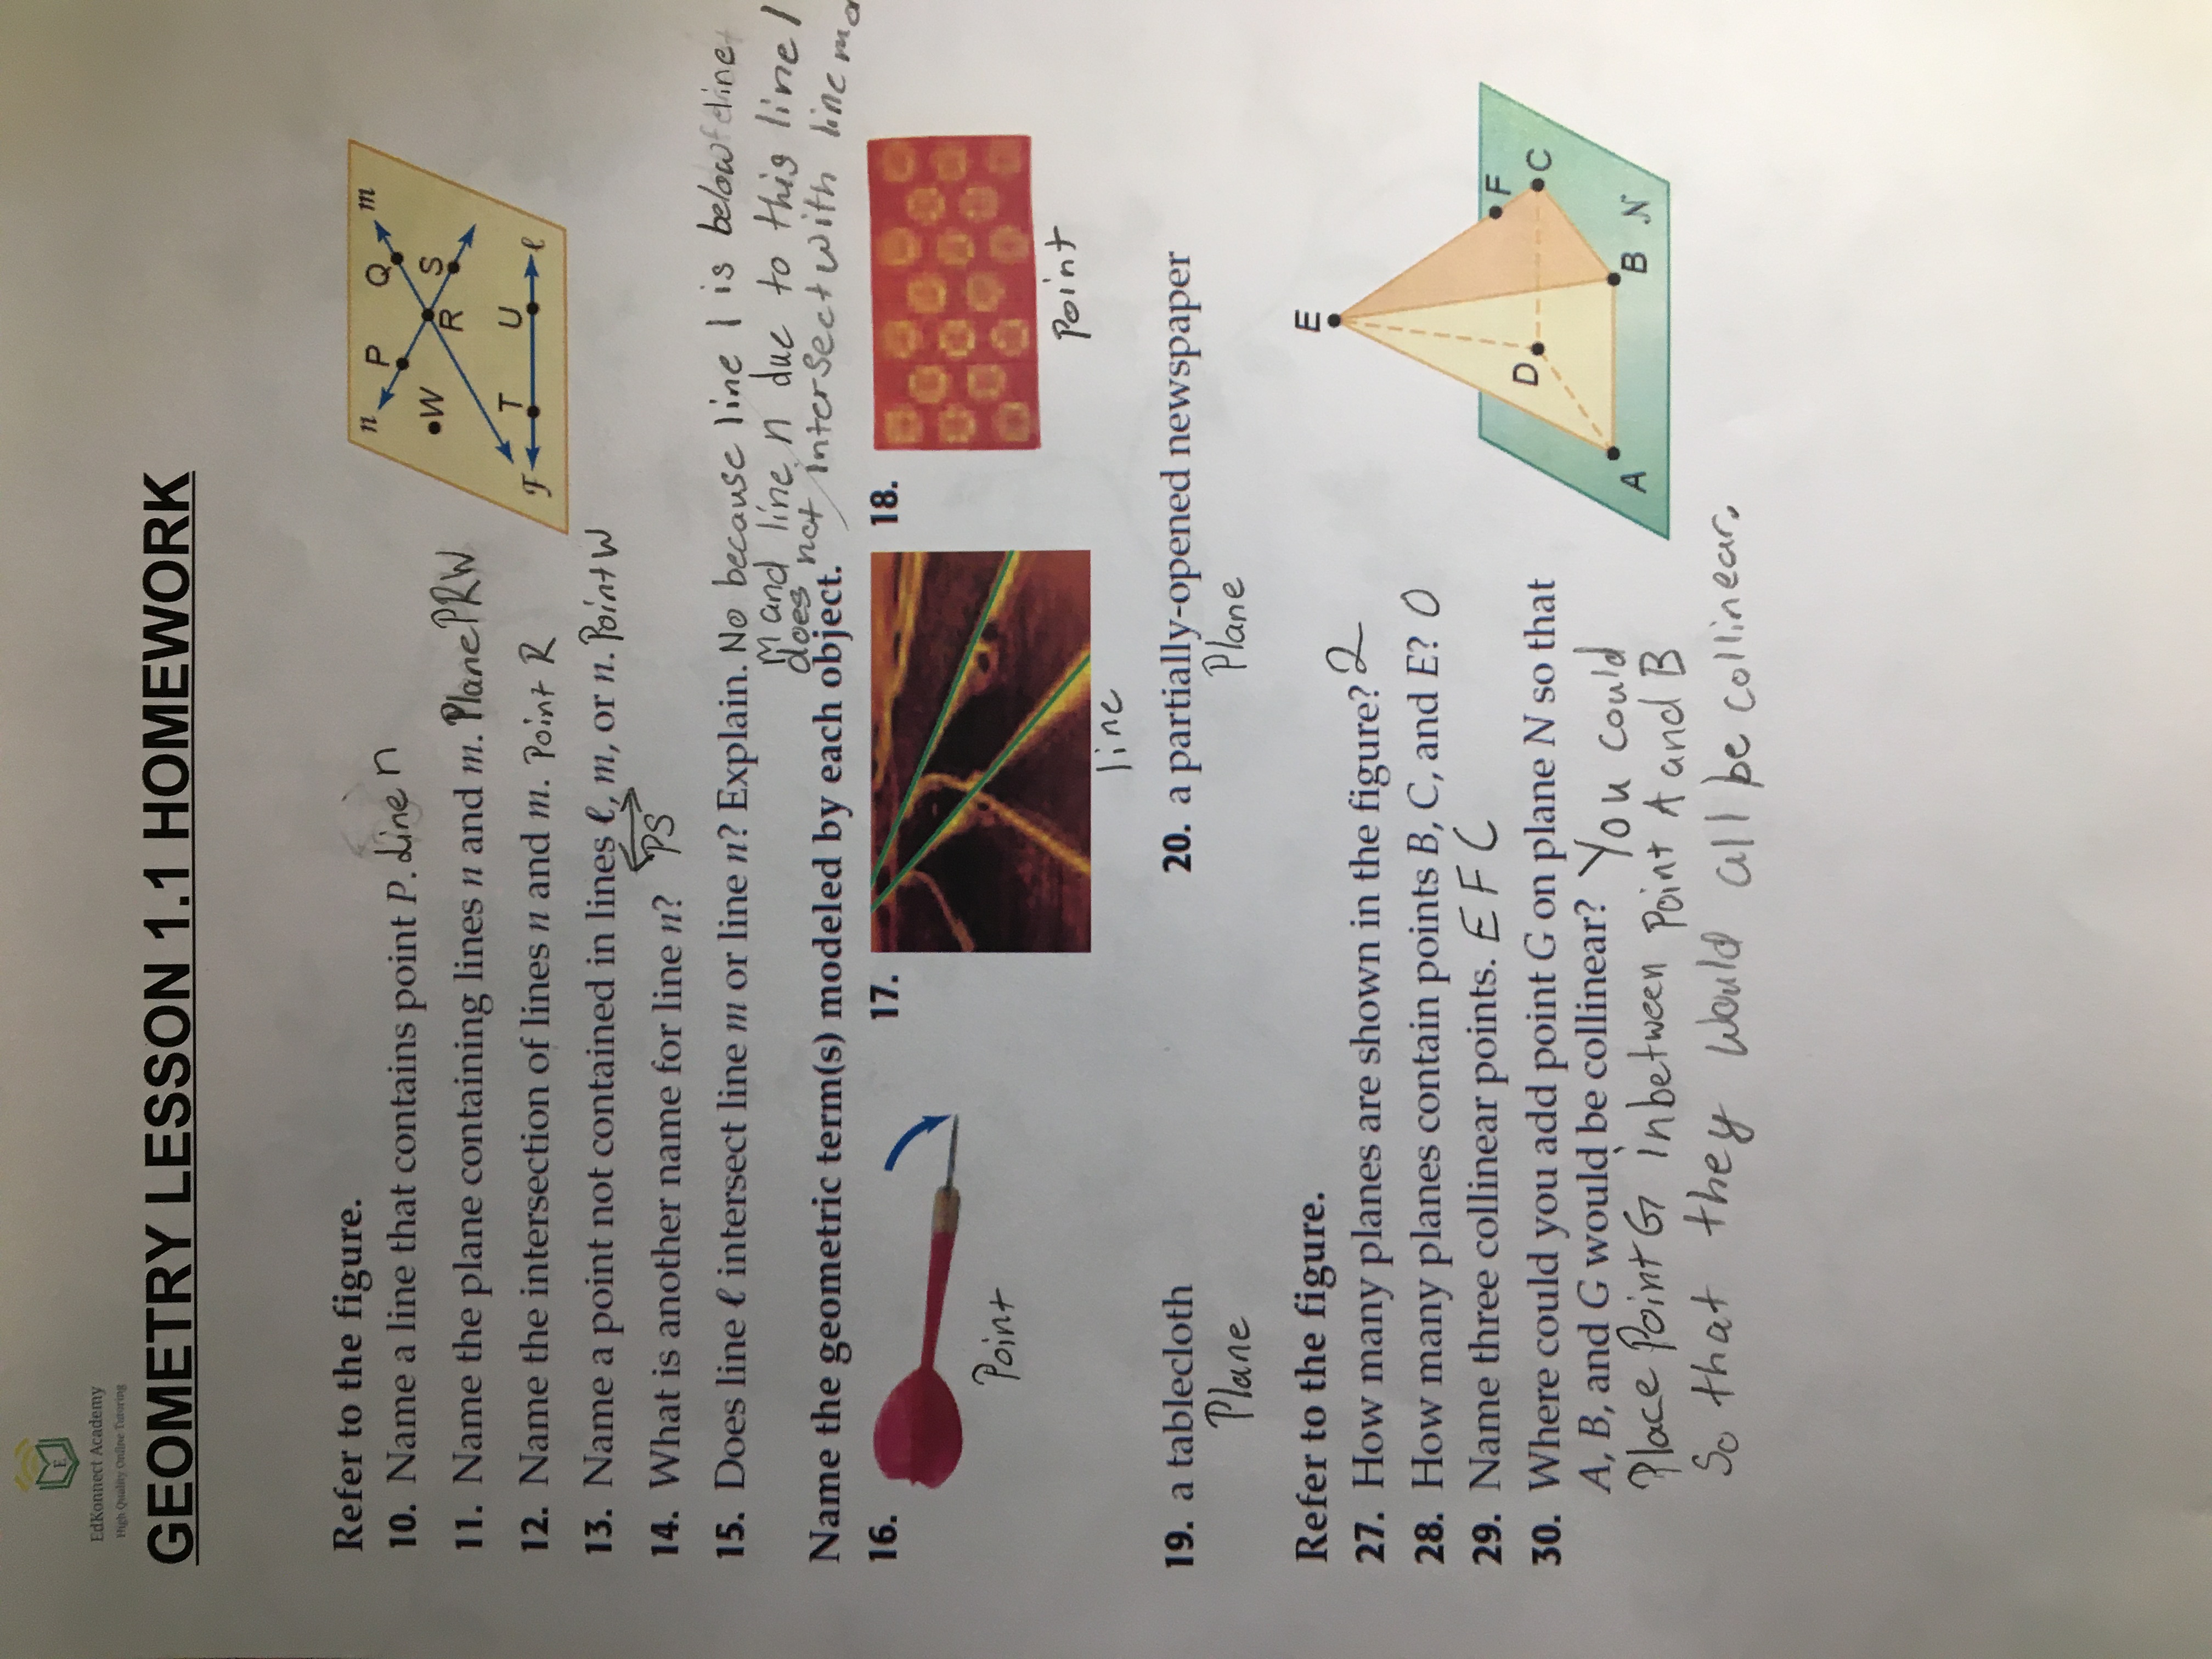 E
EdKonnect Academy
High Quality Online Tutoring
GEOMETRY LESSON 1.1 HOMEWORK
Refer to the figure.
10. Name a line that contains point P. Line n
11. Name the plane containing lines n and m. Plane PRW
12. Name the intersection of lines n and m. Point R
13. Name a point not contained in lines ℓ, m, or n. Point W
14. What is another name for line n? PS
15. Does line ℓ intersect line m or line n? Explain. No because line l is below line
m and line n due to this line l
does not intersect with line m
n P Q m
W R S
F T U ℓ
Name the geometric term(s) modeled by each object.
16. 17. 18.
Point
line
Point
19. a tablecloth 20. a partially-opened newspaper
Plane Plane
Refer to the figure.
27. How many planes are shown in the figure? 2
28. How many planes contain points B, C, and E? 0
29. Name three collinear points. E F C
30. Where could you add point G on plane N so that
A, B, and G would be collinear? You could
Place Point G inbetween Point A and B
So that they would all be collinear.
E
F
D C
A B N